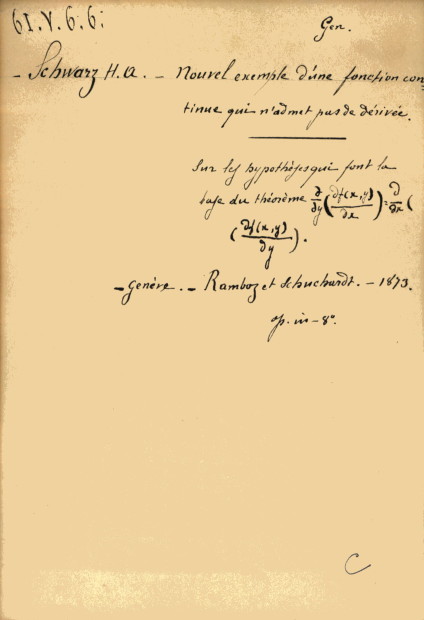 61.V.6.6;
Gen.
- Schwarz H.A. - Nouvel exemple d'une fonction con=
tinue qui n'admet pas de dérivée.
Sur les hypothèses qui font la
base du théorème ∂/∂y (∂f(x,y)/∂x) = ∂/∂x (
(∂f(x,y)/∂y).
- Genève. - Ramboz et Schuchardt. - 1873.
op. in-8°.
C